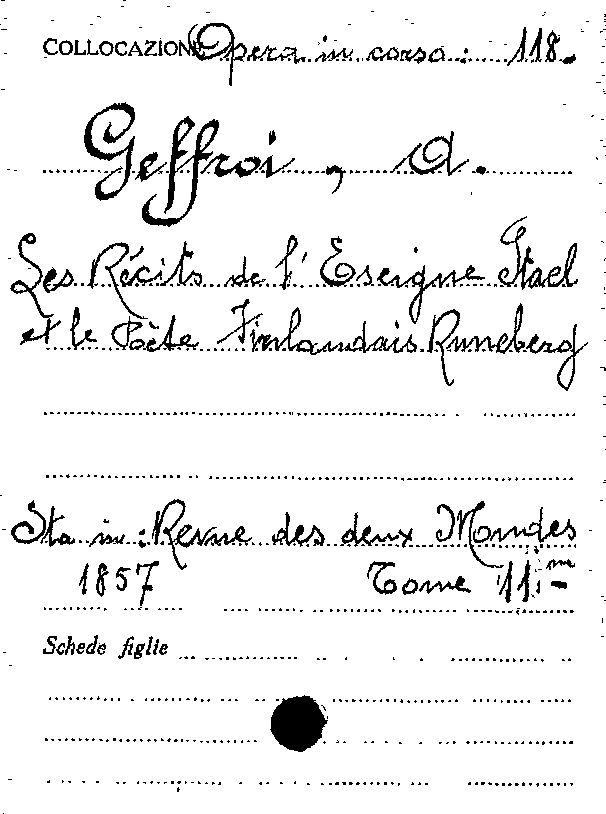 COLLOCAZIONE Opera in corso: 118.
Geffroi, A.
Les Récits de l'Eseigne Stael
et le Poète Finlandais Runeberg
Sta in: Revue des deux Mondes
1857 Tome 11me
Schede figlie